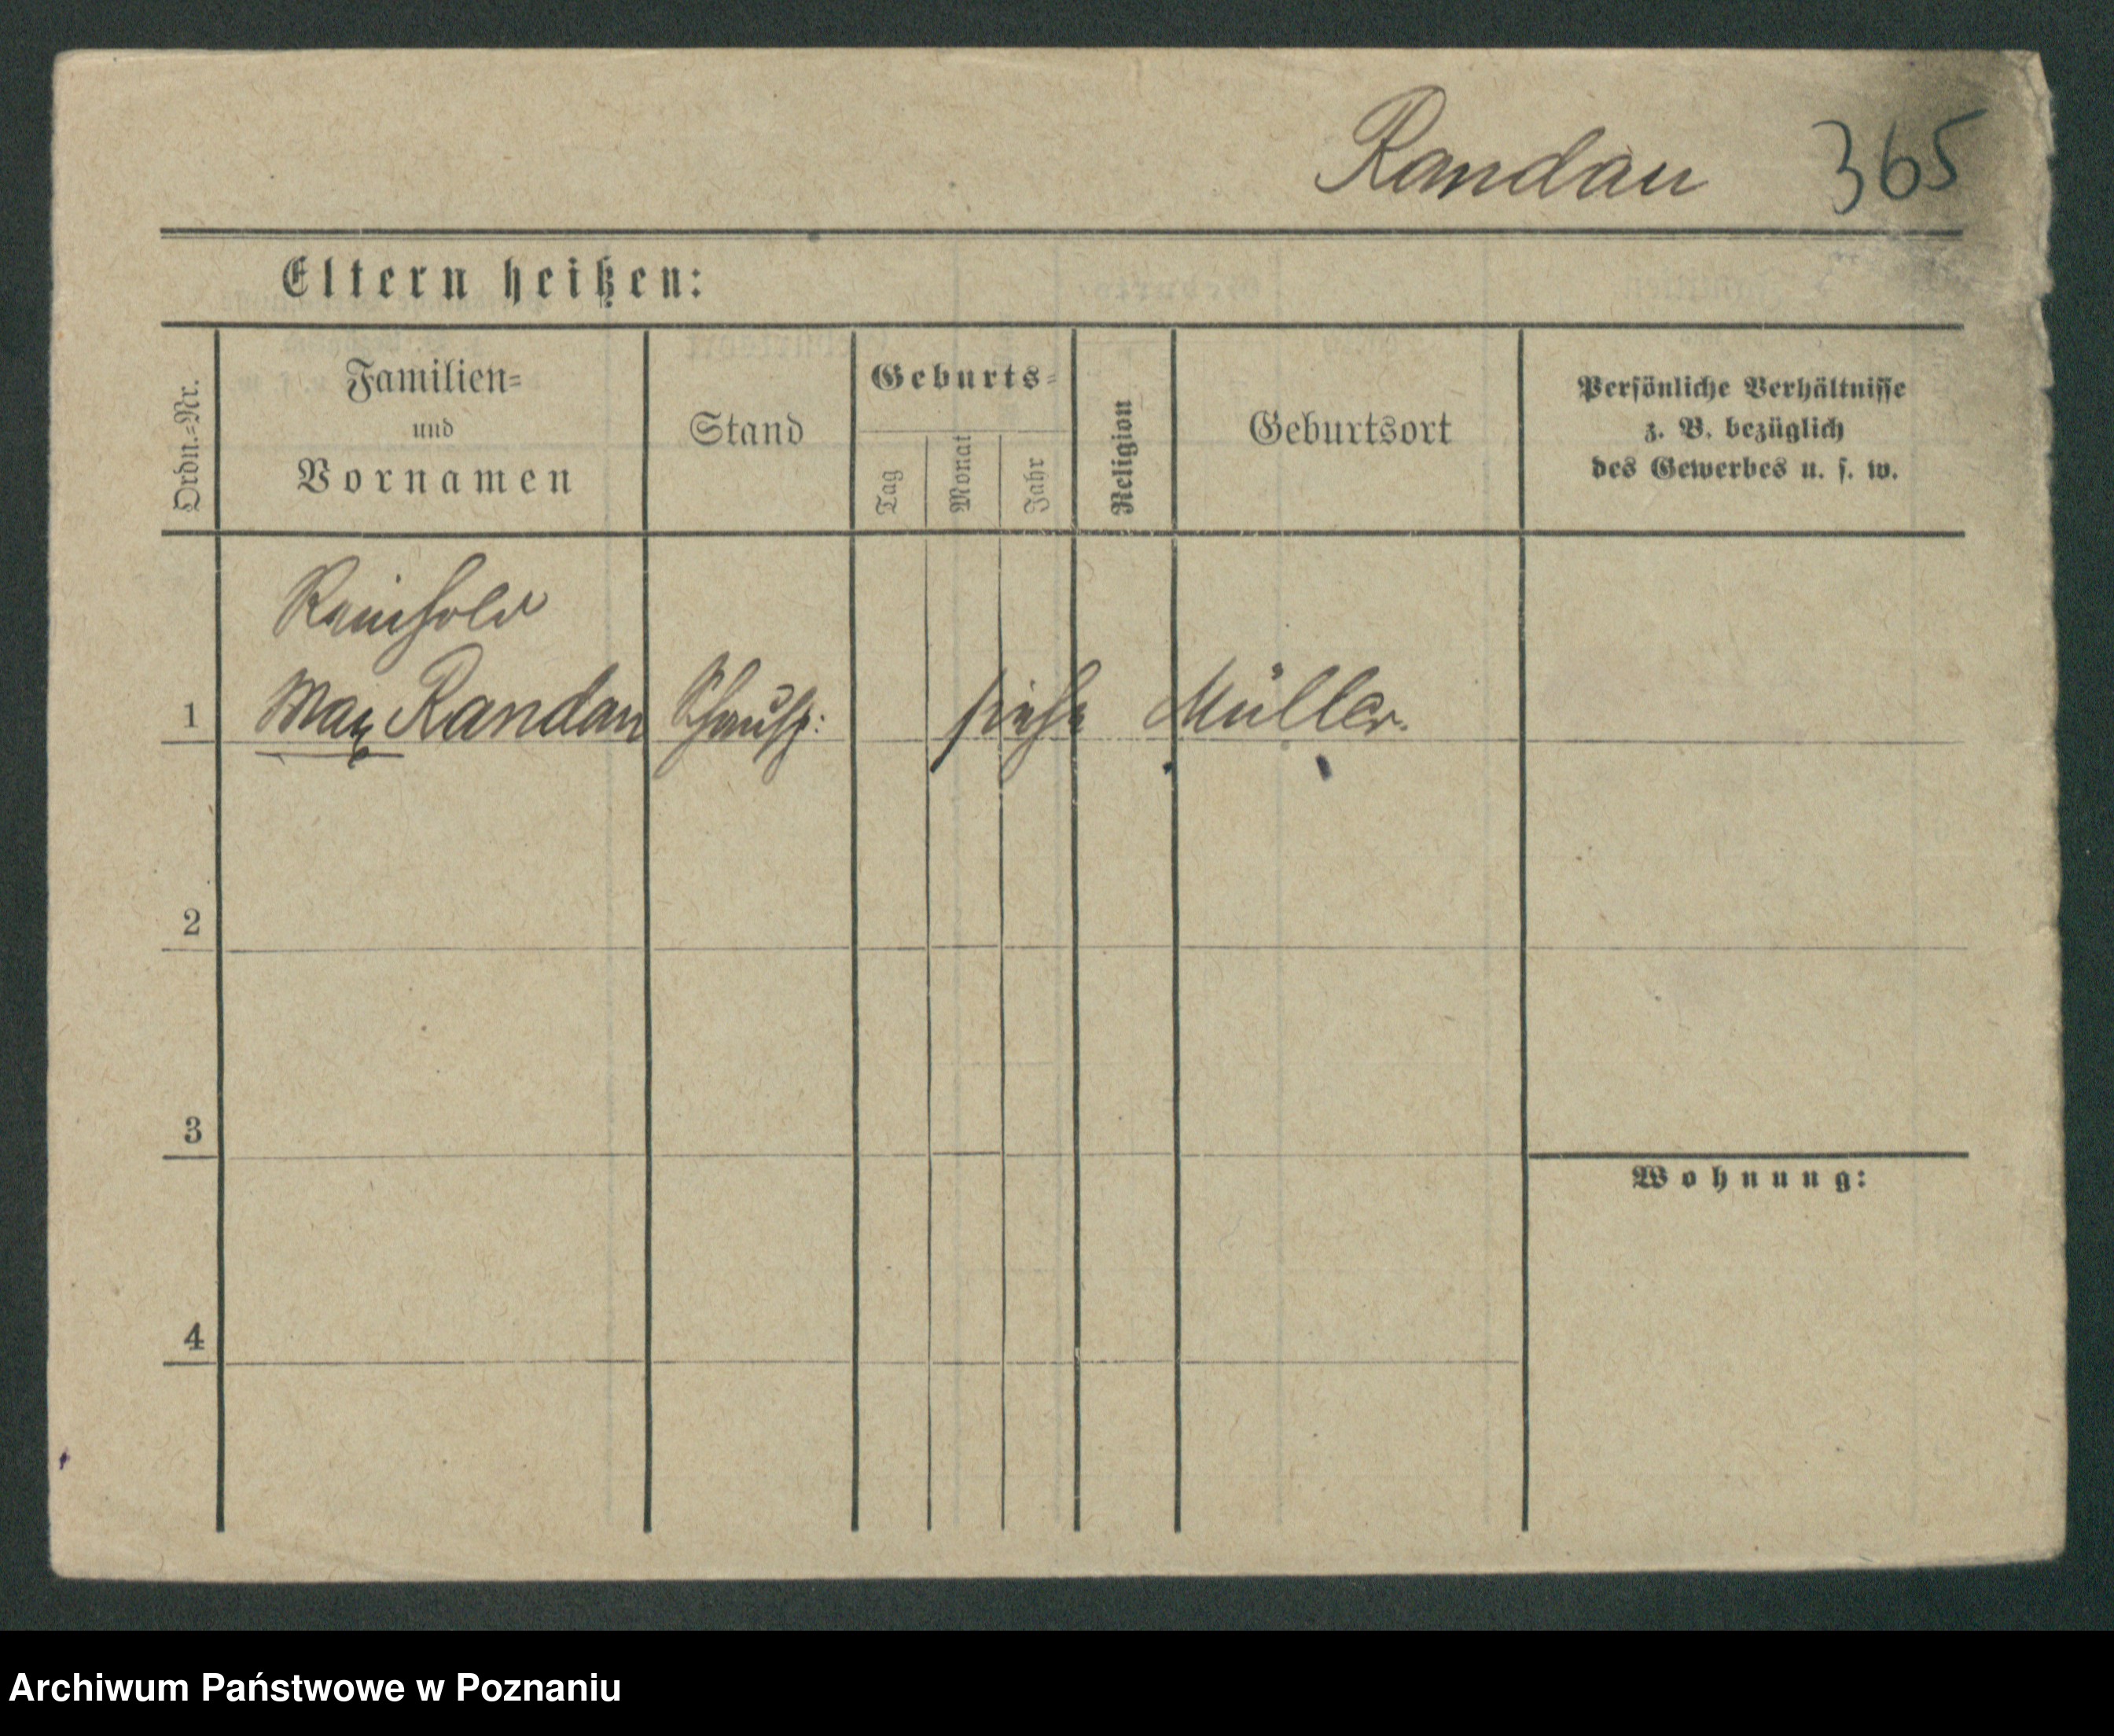 Randau 365
Eltern heißen:
Ordn.=Nr.
Familien=
und
Vornamen
Stand
Geburts=
Tag
Monat
Jahr
Religion
Geburtsort
Persönliche Verhältnisse
z. B. bezüglich
des Gewerbes u. s. w.
Reinhold
1 Max Randau Schausp: siehe Müller.
2
3
Wohnung:
4
Archiwum Państwowe w Poznaniu